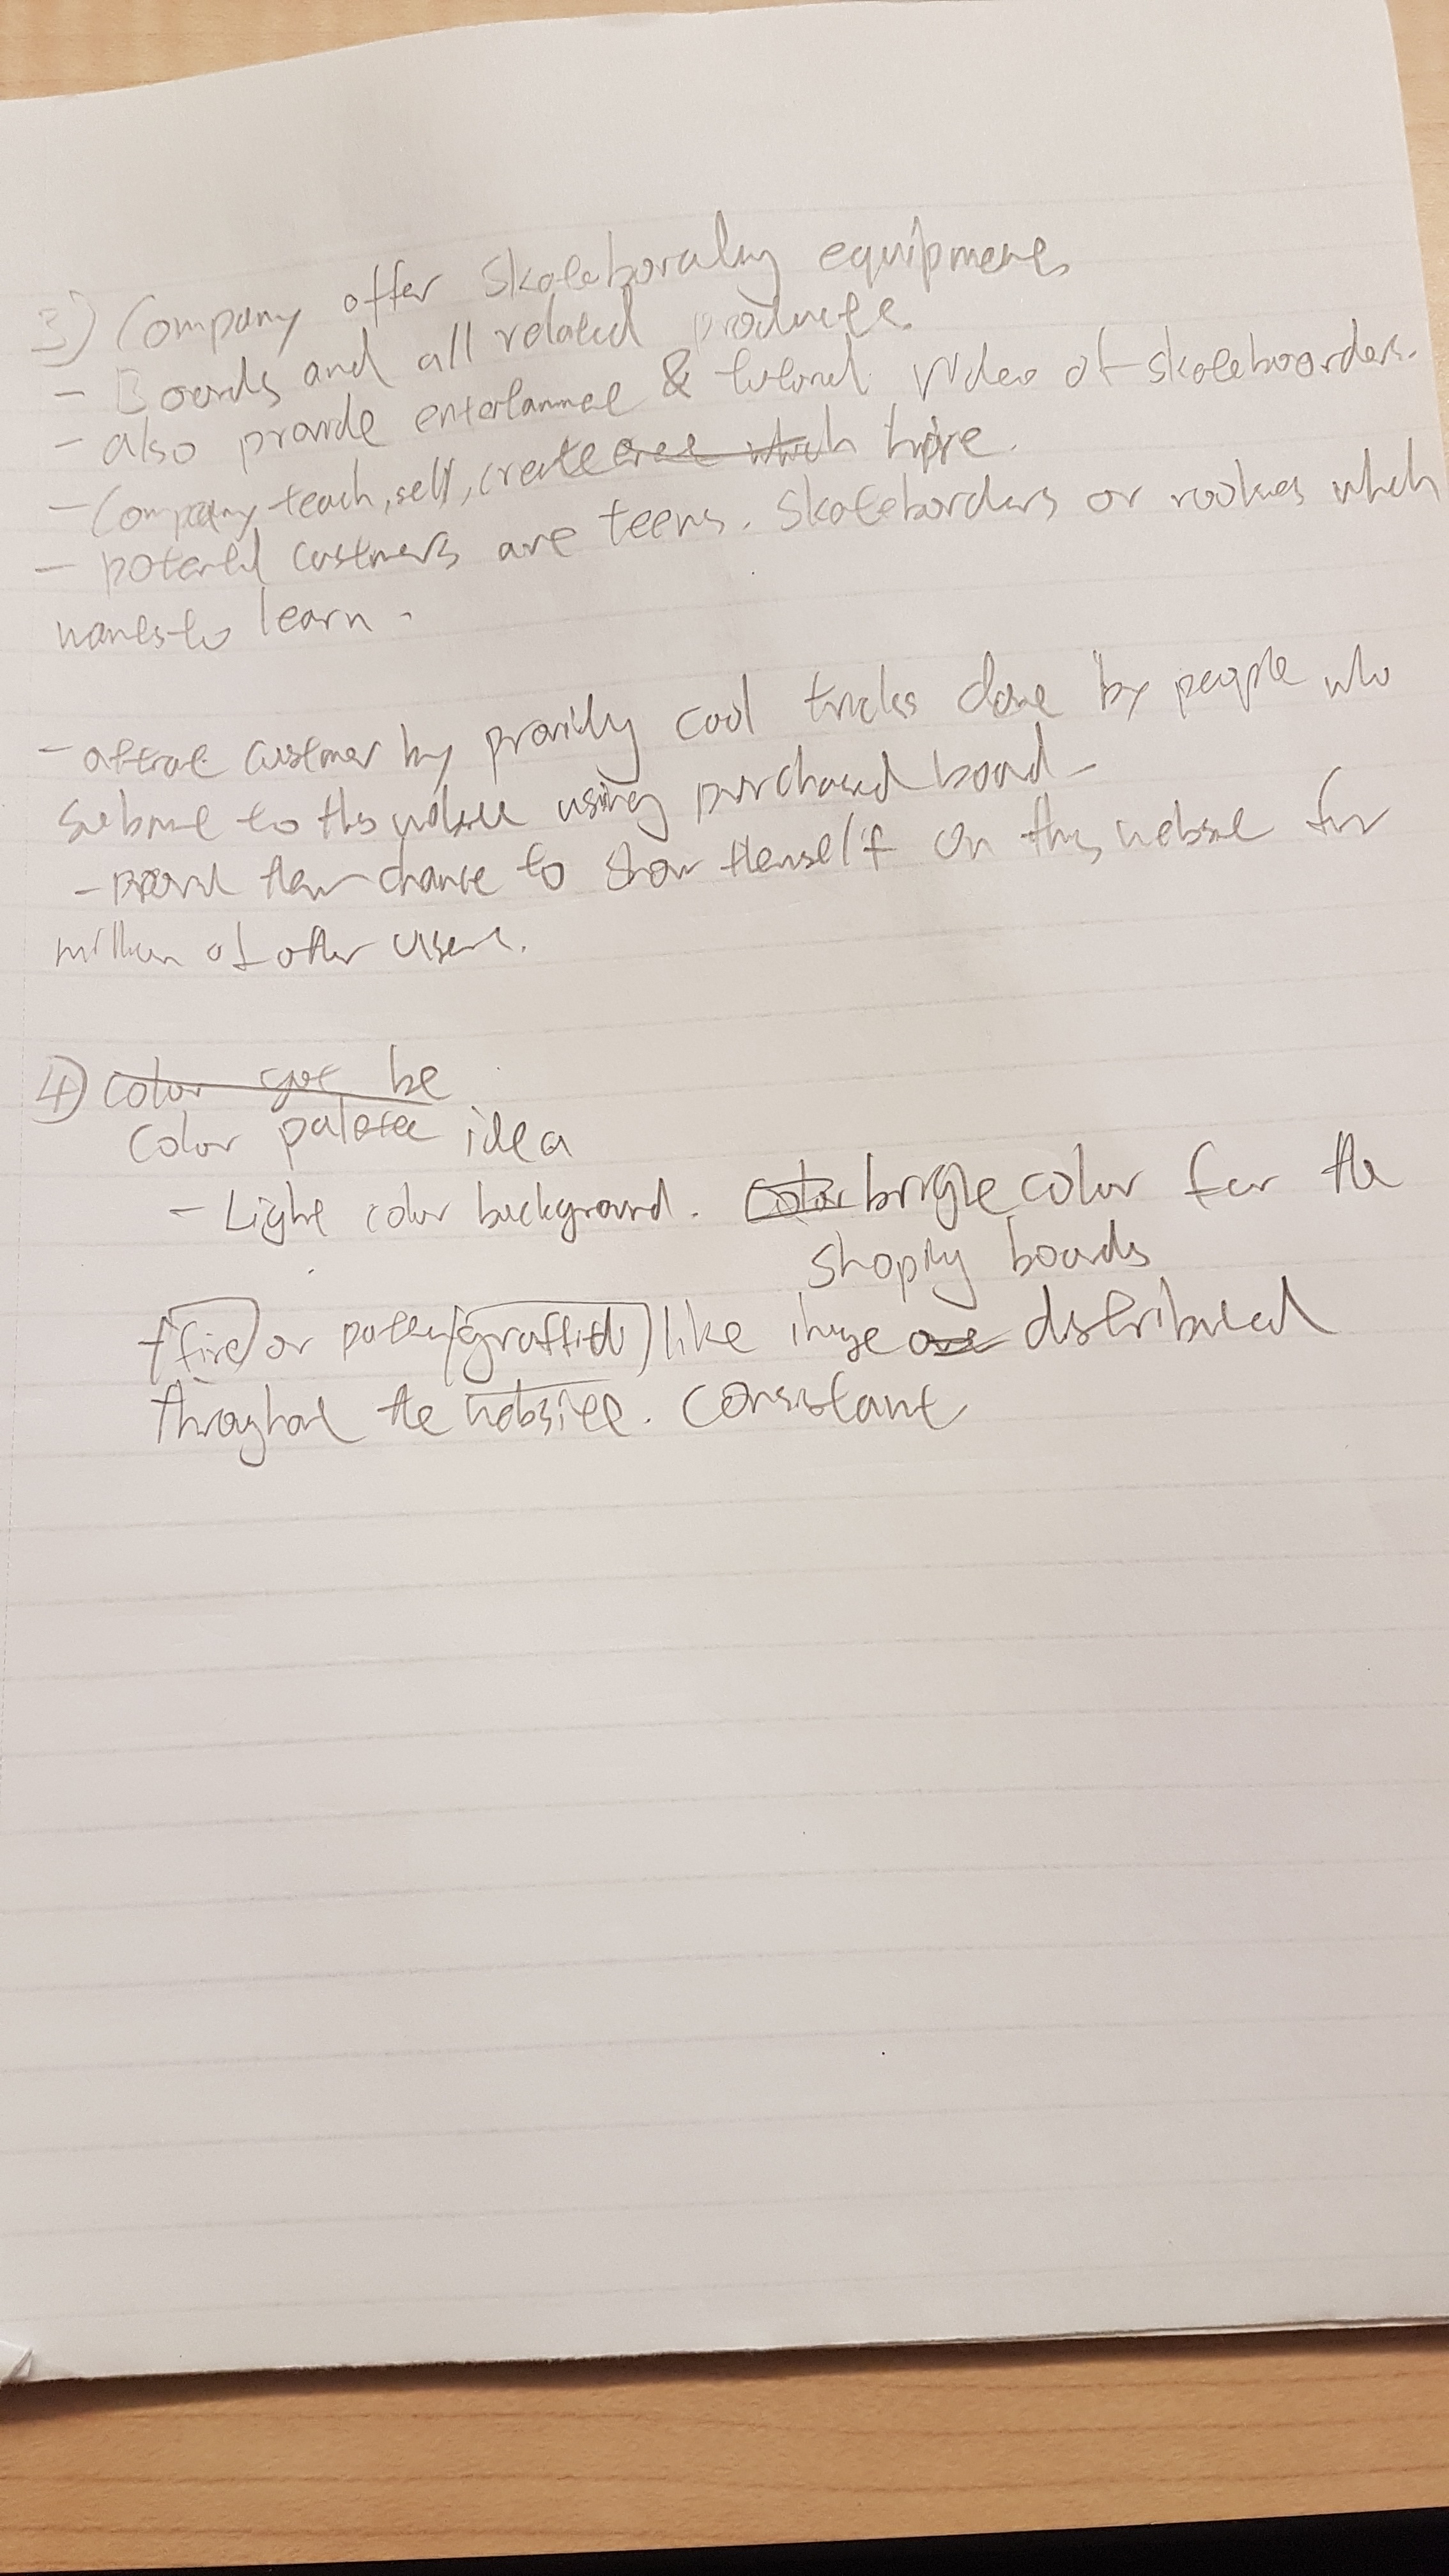 3) Company offer Skateboarding equipments
- Boards and all related products.
- also provide entertainment & tutorial video of skateboarders.
- Company teach, sell, create hire.
- potential customers are teens. Skateborders or rookies which
wants to learn.
- attract customer by providing cool tricks done by people who
submit to this website using purchased board-
- them chance to show themself on this website for
million of other users.
4) color be
color palette idea
- Light color background. color bright color for the
shoping boards
(fire) or pattern (graffiti) like image are distributed
throughout the website. consistant